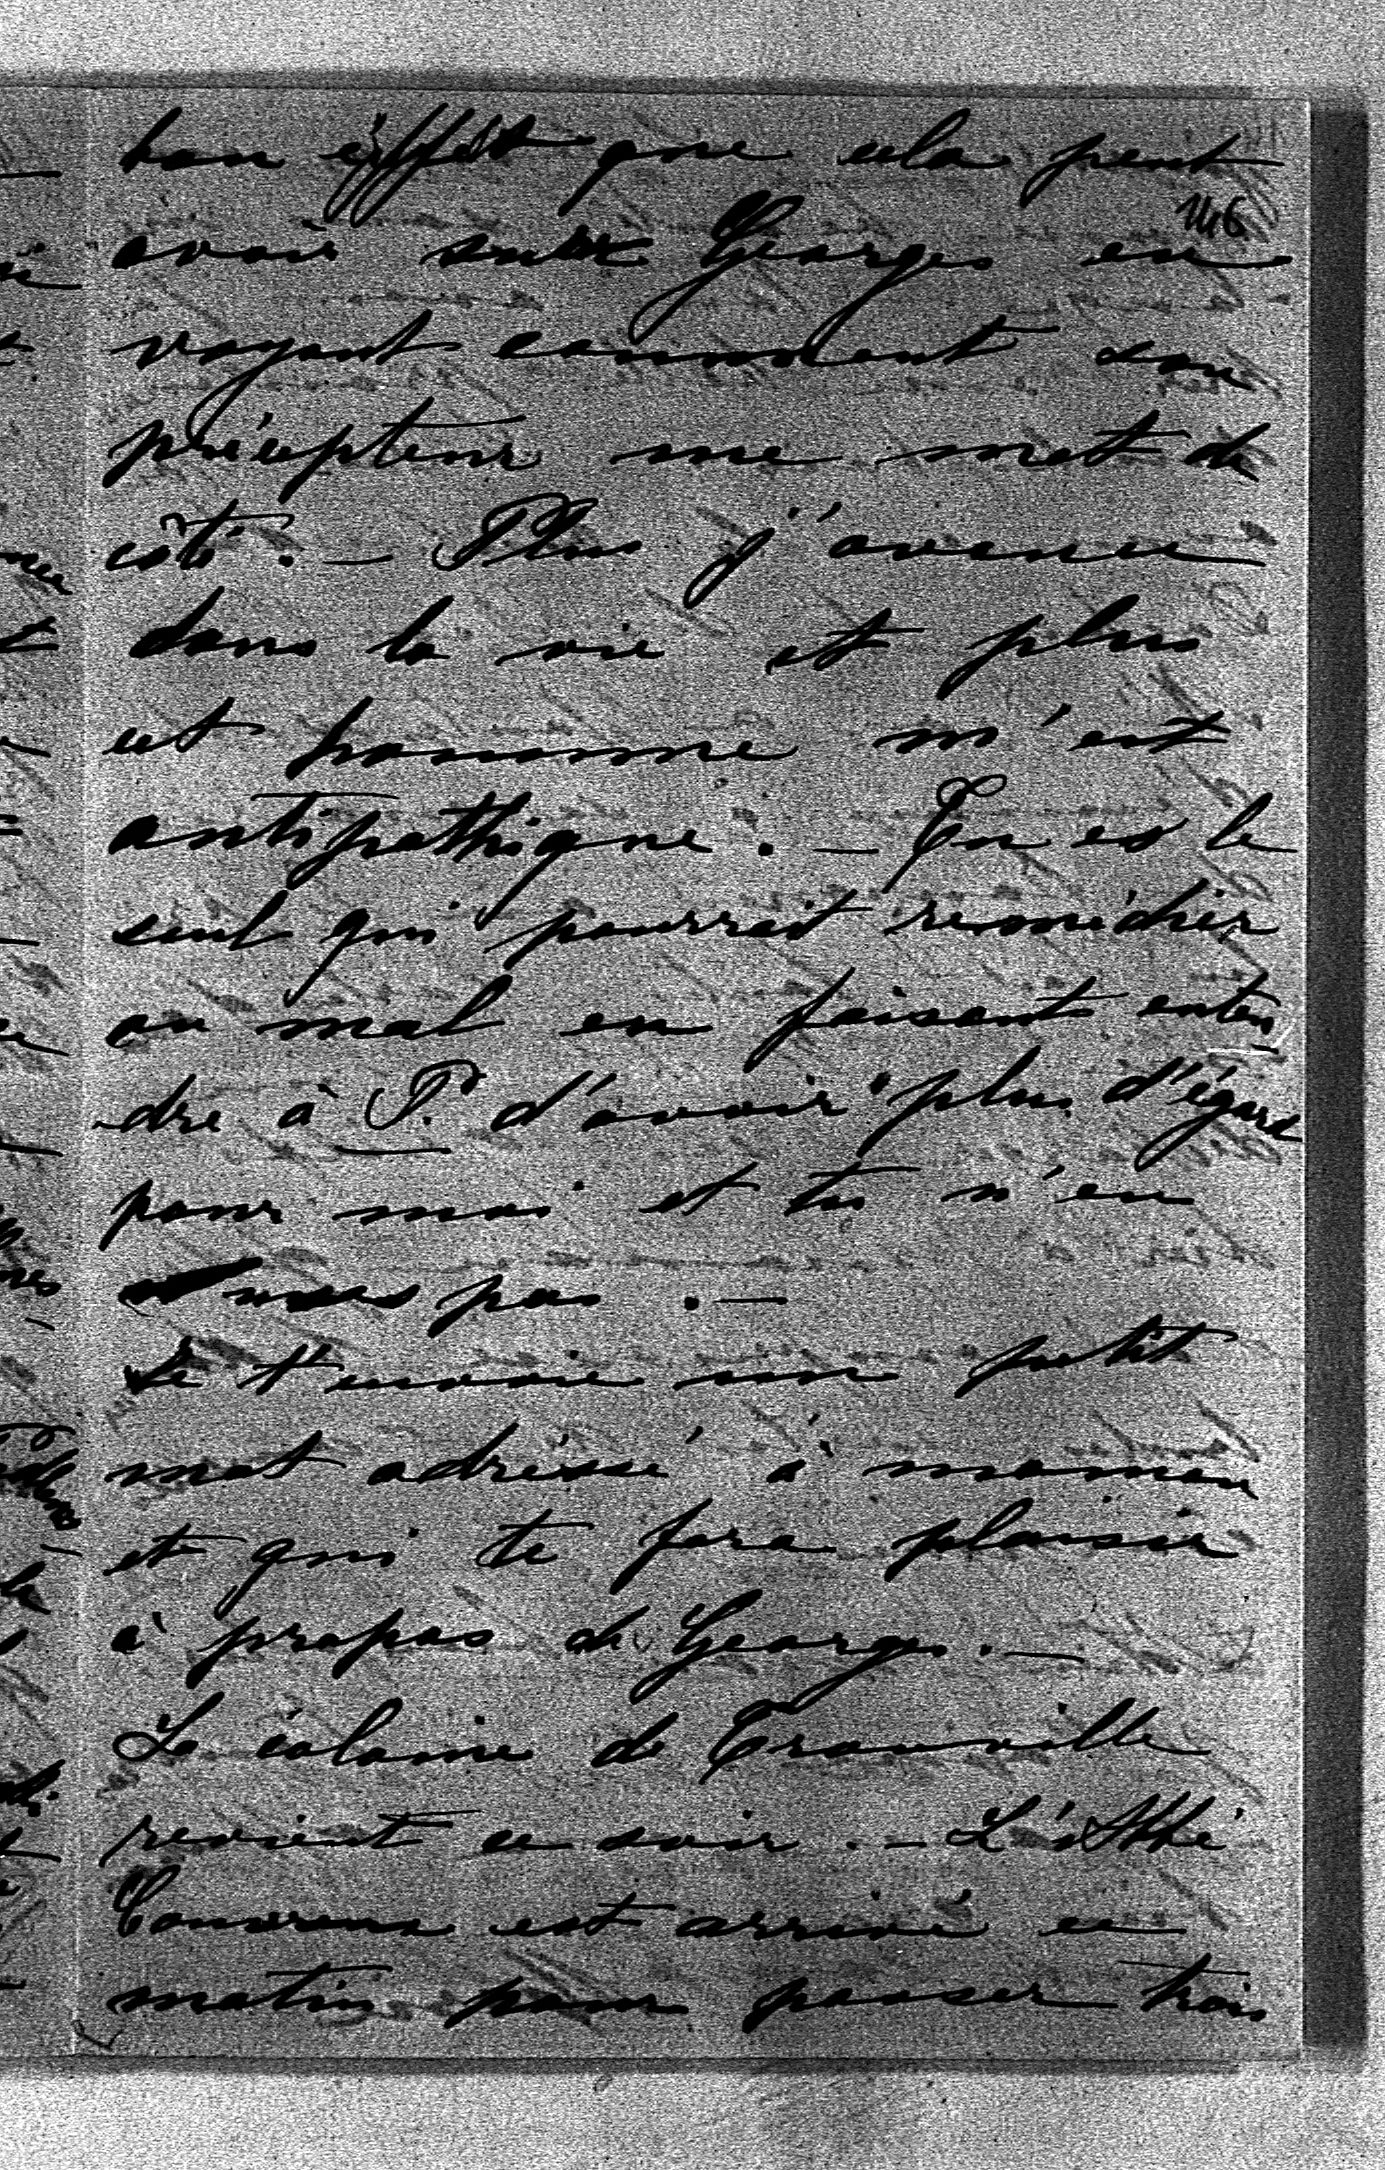 bon effet que cela peut
146
avoir sur Georges en
voyant comment son
précepteur me met de
côté. — Plus j'avance
dans la vie et plus
cet homme m'est
antipathique. — Tu es le
seul qui pourrait remédier
au mal en faisant enten
dre à P. d'avoir plus d'égard
pour moi et tu n'en
pas. —
Je t'envoie un petit
mot adressé à maman
et qui te fera plaisir
à propos de Georges. —
La colonie de Trouville
revient ce soir. — L'Abbé
est arrivé ce
matin pour passer trois